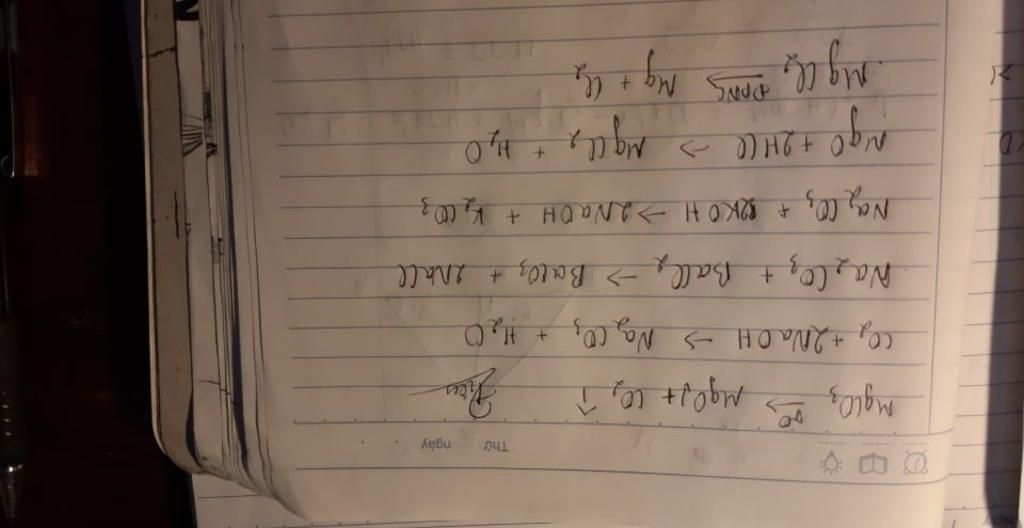 Thứ ngày
MgCO₃ →(t°) MgO + CO₂ ↑
CO₂ + 2NaOH → Na₂CO₃ + H₂O
Na₂CO₃ + BaCl₂ → BaCO₃ + 2NaCl
Na₂CO₃ + 2KOH → 2NaOH + K₂CO₃
MgO + 2HCl → MgCl₂ + H₂O
MgCl₂ →(ĐPNC) Mg + Cl₂